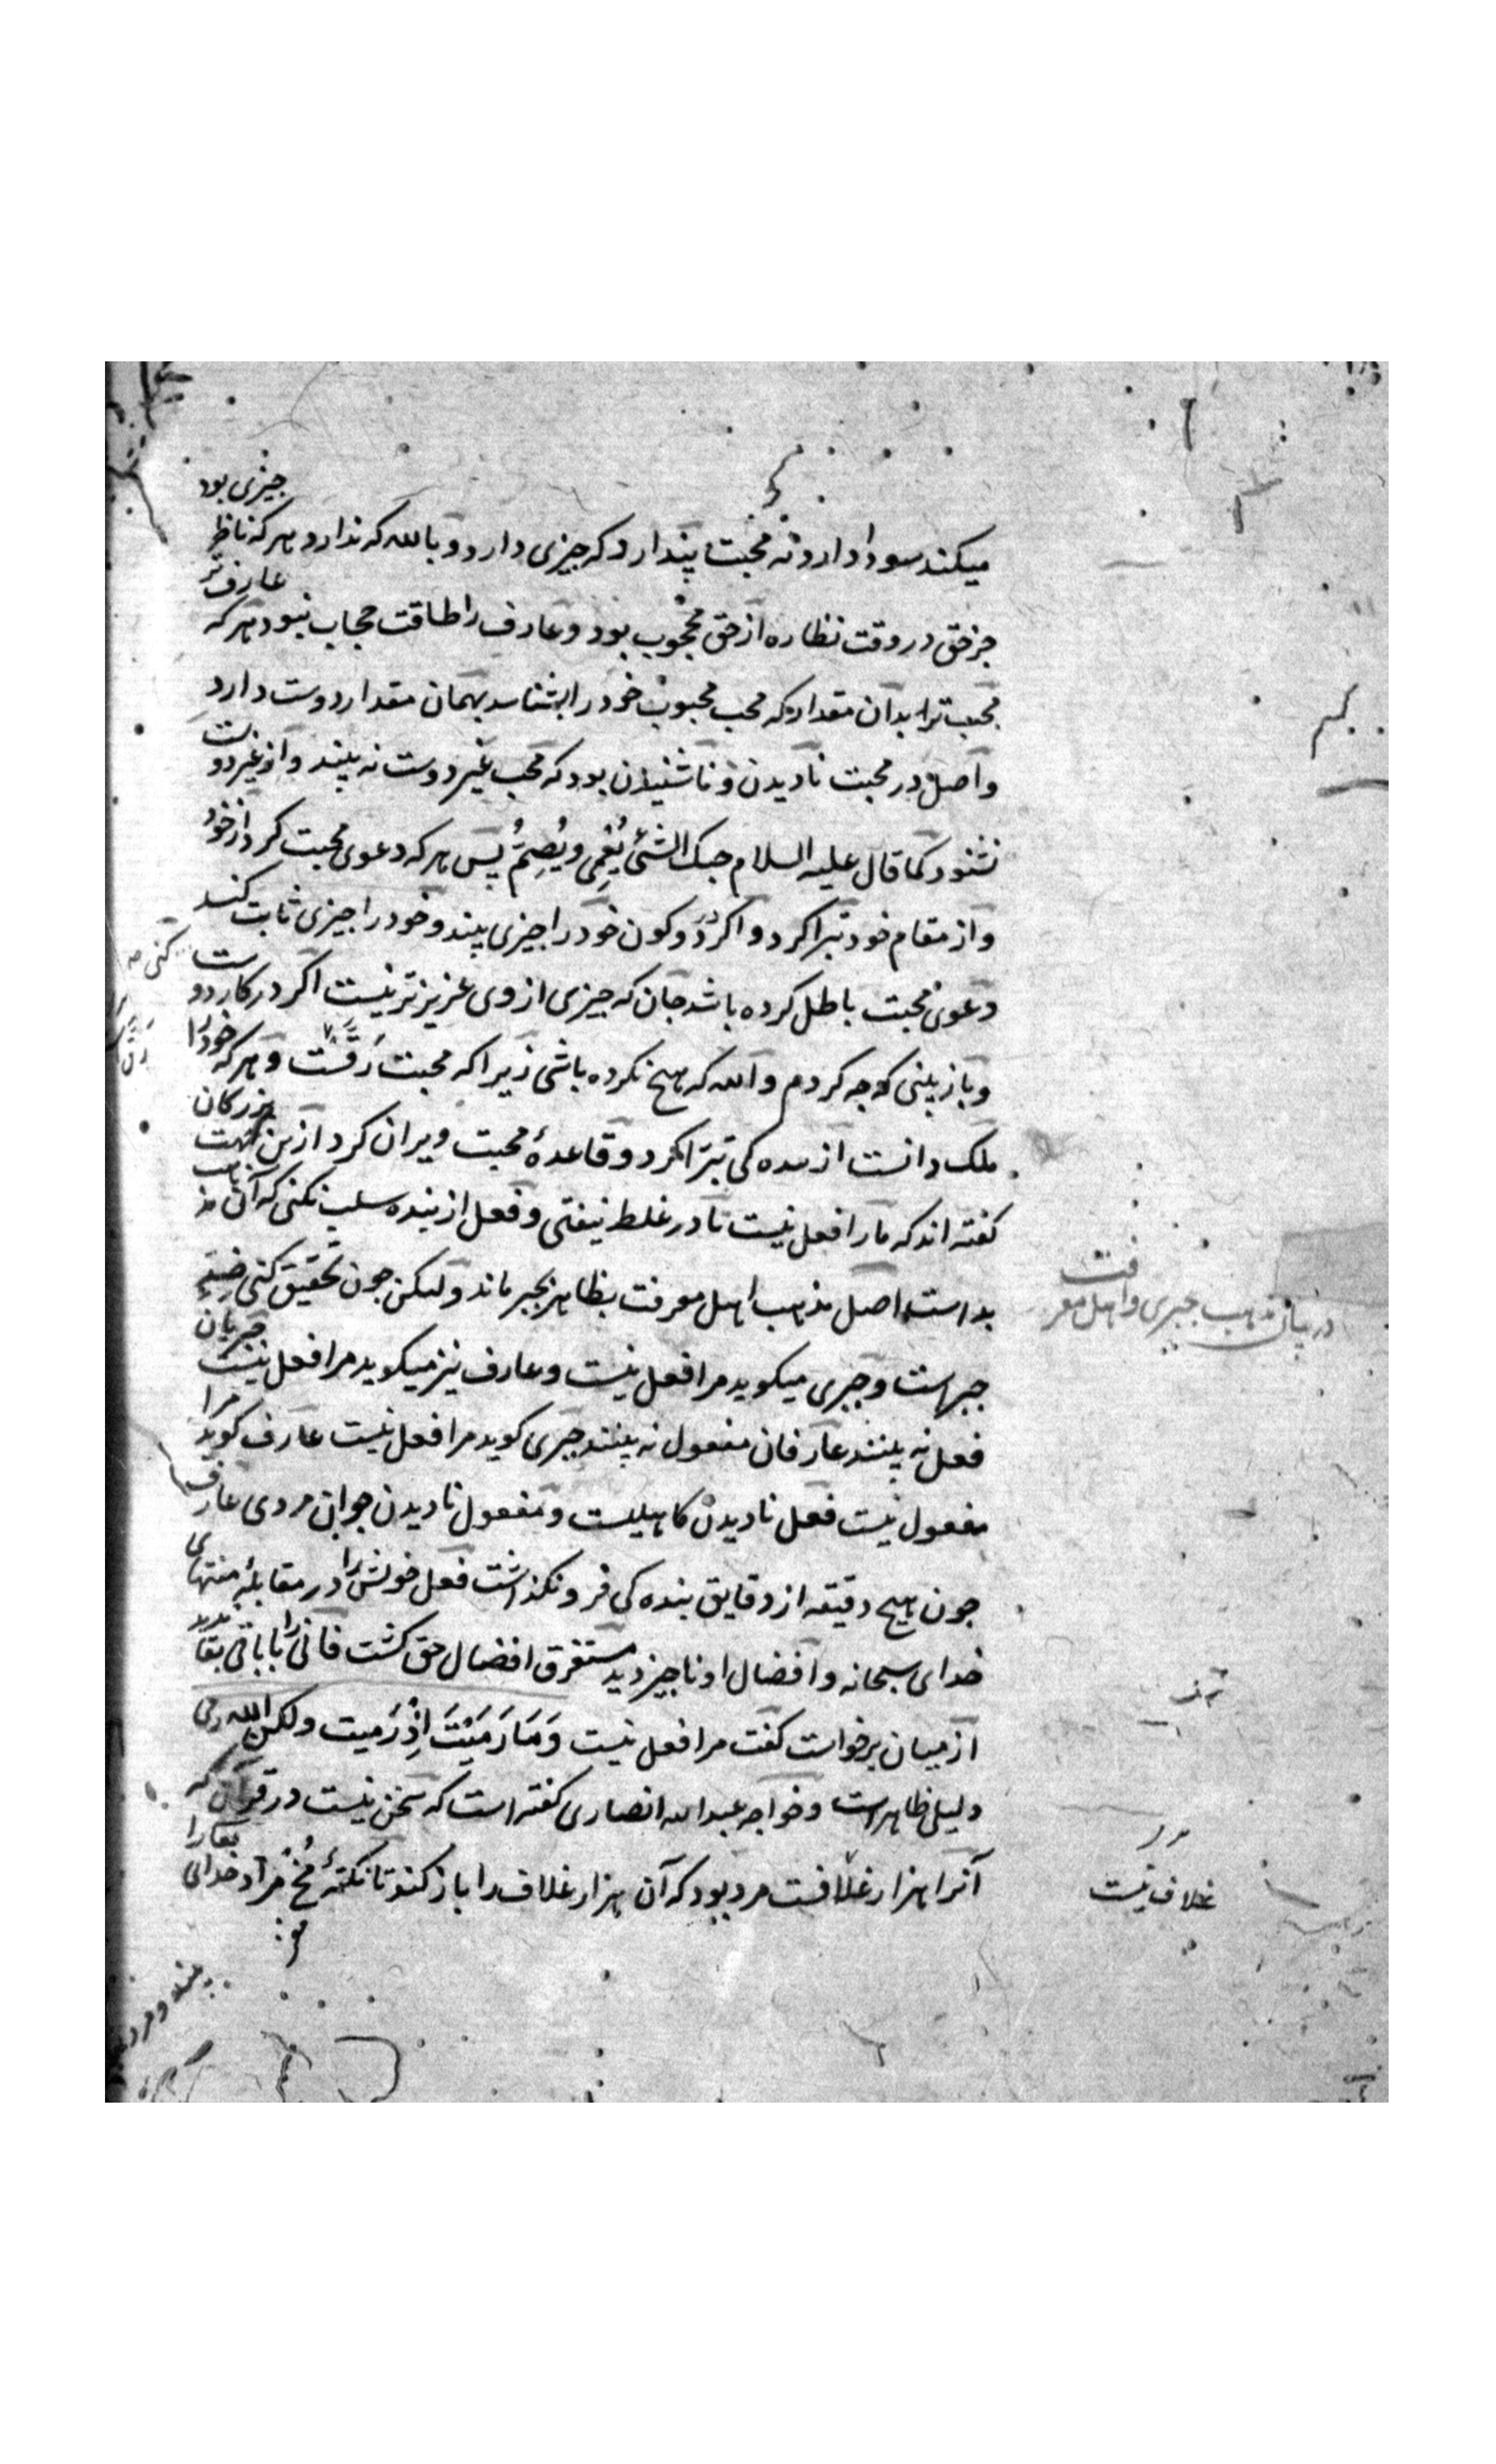 میکند سودا دارد نه محبت پندارد که چیزی دارد و بالله که ندارد و هر که ناظر چیزی بود
جز حق در وقت نظاره از حق محجوب بود و عارف را طاقت حجاب نبود هر که عارف تر
محب تر بدان مقدار که محب محبوب خود را بشناسد بهمان مقدار دوست دارد
و اصل در محبت نادیدن و ناشنیدن بود که محب غیر دوست نه بیند و از غیر دوست
نشنود کما قال علیه السلام حبک الشئ یُعْمِی ویُصِمُّ پس هر که دعوی محبت کرد از خود
و از مقام خود تبرا کرد و اگر در دو کون خود را چیزی بیند و خود را چیزی ثابت کند
دعوی محبت باطل کرده باشد جان که چیزی از وی عزیزتر نیست اگر در کار دوست کنی
و باز بینی که چه کردم والله که هیچ نکرده باشی زیرا که محبت رقّست و هر که خود را
ملک دانست از بنده کی تبرّا کرد و قاعدهٔ محبت ویران کرد ازین جهت بزرکان
کفته اند که ما را فعل نیست تا در غلط نیفتی و فعل از بنده سلب نکنی که آن مذهب
بد است اصل مذهب اهل معرفت بظاهر بجبر ماند ولیکن چون تحقیق کنی ضدِّ
جبر است و جبری میکوید مرا فعل نیست و عارف نیز میکوید مرا فعل نیست جبریان
فعل نه بینند عارفان مفعول نه بینند جبری کوید مرا فعل نیست عارف کوید مرا
مفعول نیست فعل نادیدن کاهلیست و مفعول نادیدن جوان مردی عارف
چون هیچ دقیقه از دقایق بنده کی فرو نکذاشت فعل خویش را در مقابلهٔ منتهای
خدای سبحانه و افضال او ناچیز دید مستغرق افضال حق کشت فانی را با باقی بقا
از میان برخواست کفت مرا فعل نیست وَمَا رَمَیْتَ اِذْ رَمیت ولکن الله رمی
دلیلی ظاهر است و خواجه عبدالله انصاری کفته است که سخن نیست در قرآن که
آنرا هزار غلافست مرد بود که آن هزار غلاف را باز کند تا نکتهٔ مخ مراد خدای
در بیان مذهب جبری و اهل معرفت
غلاف نیست